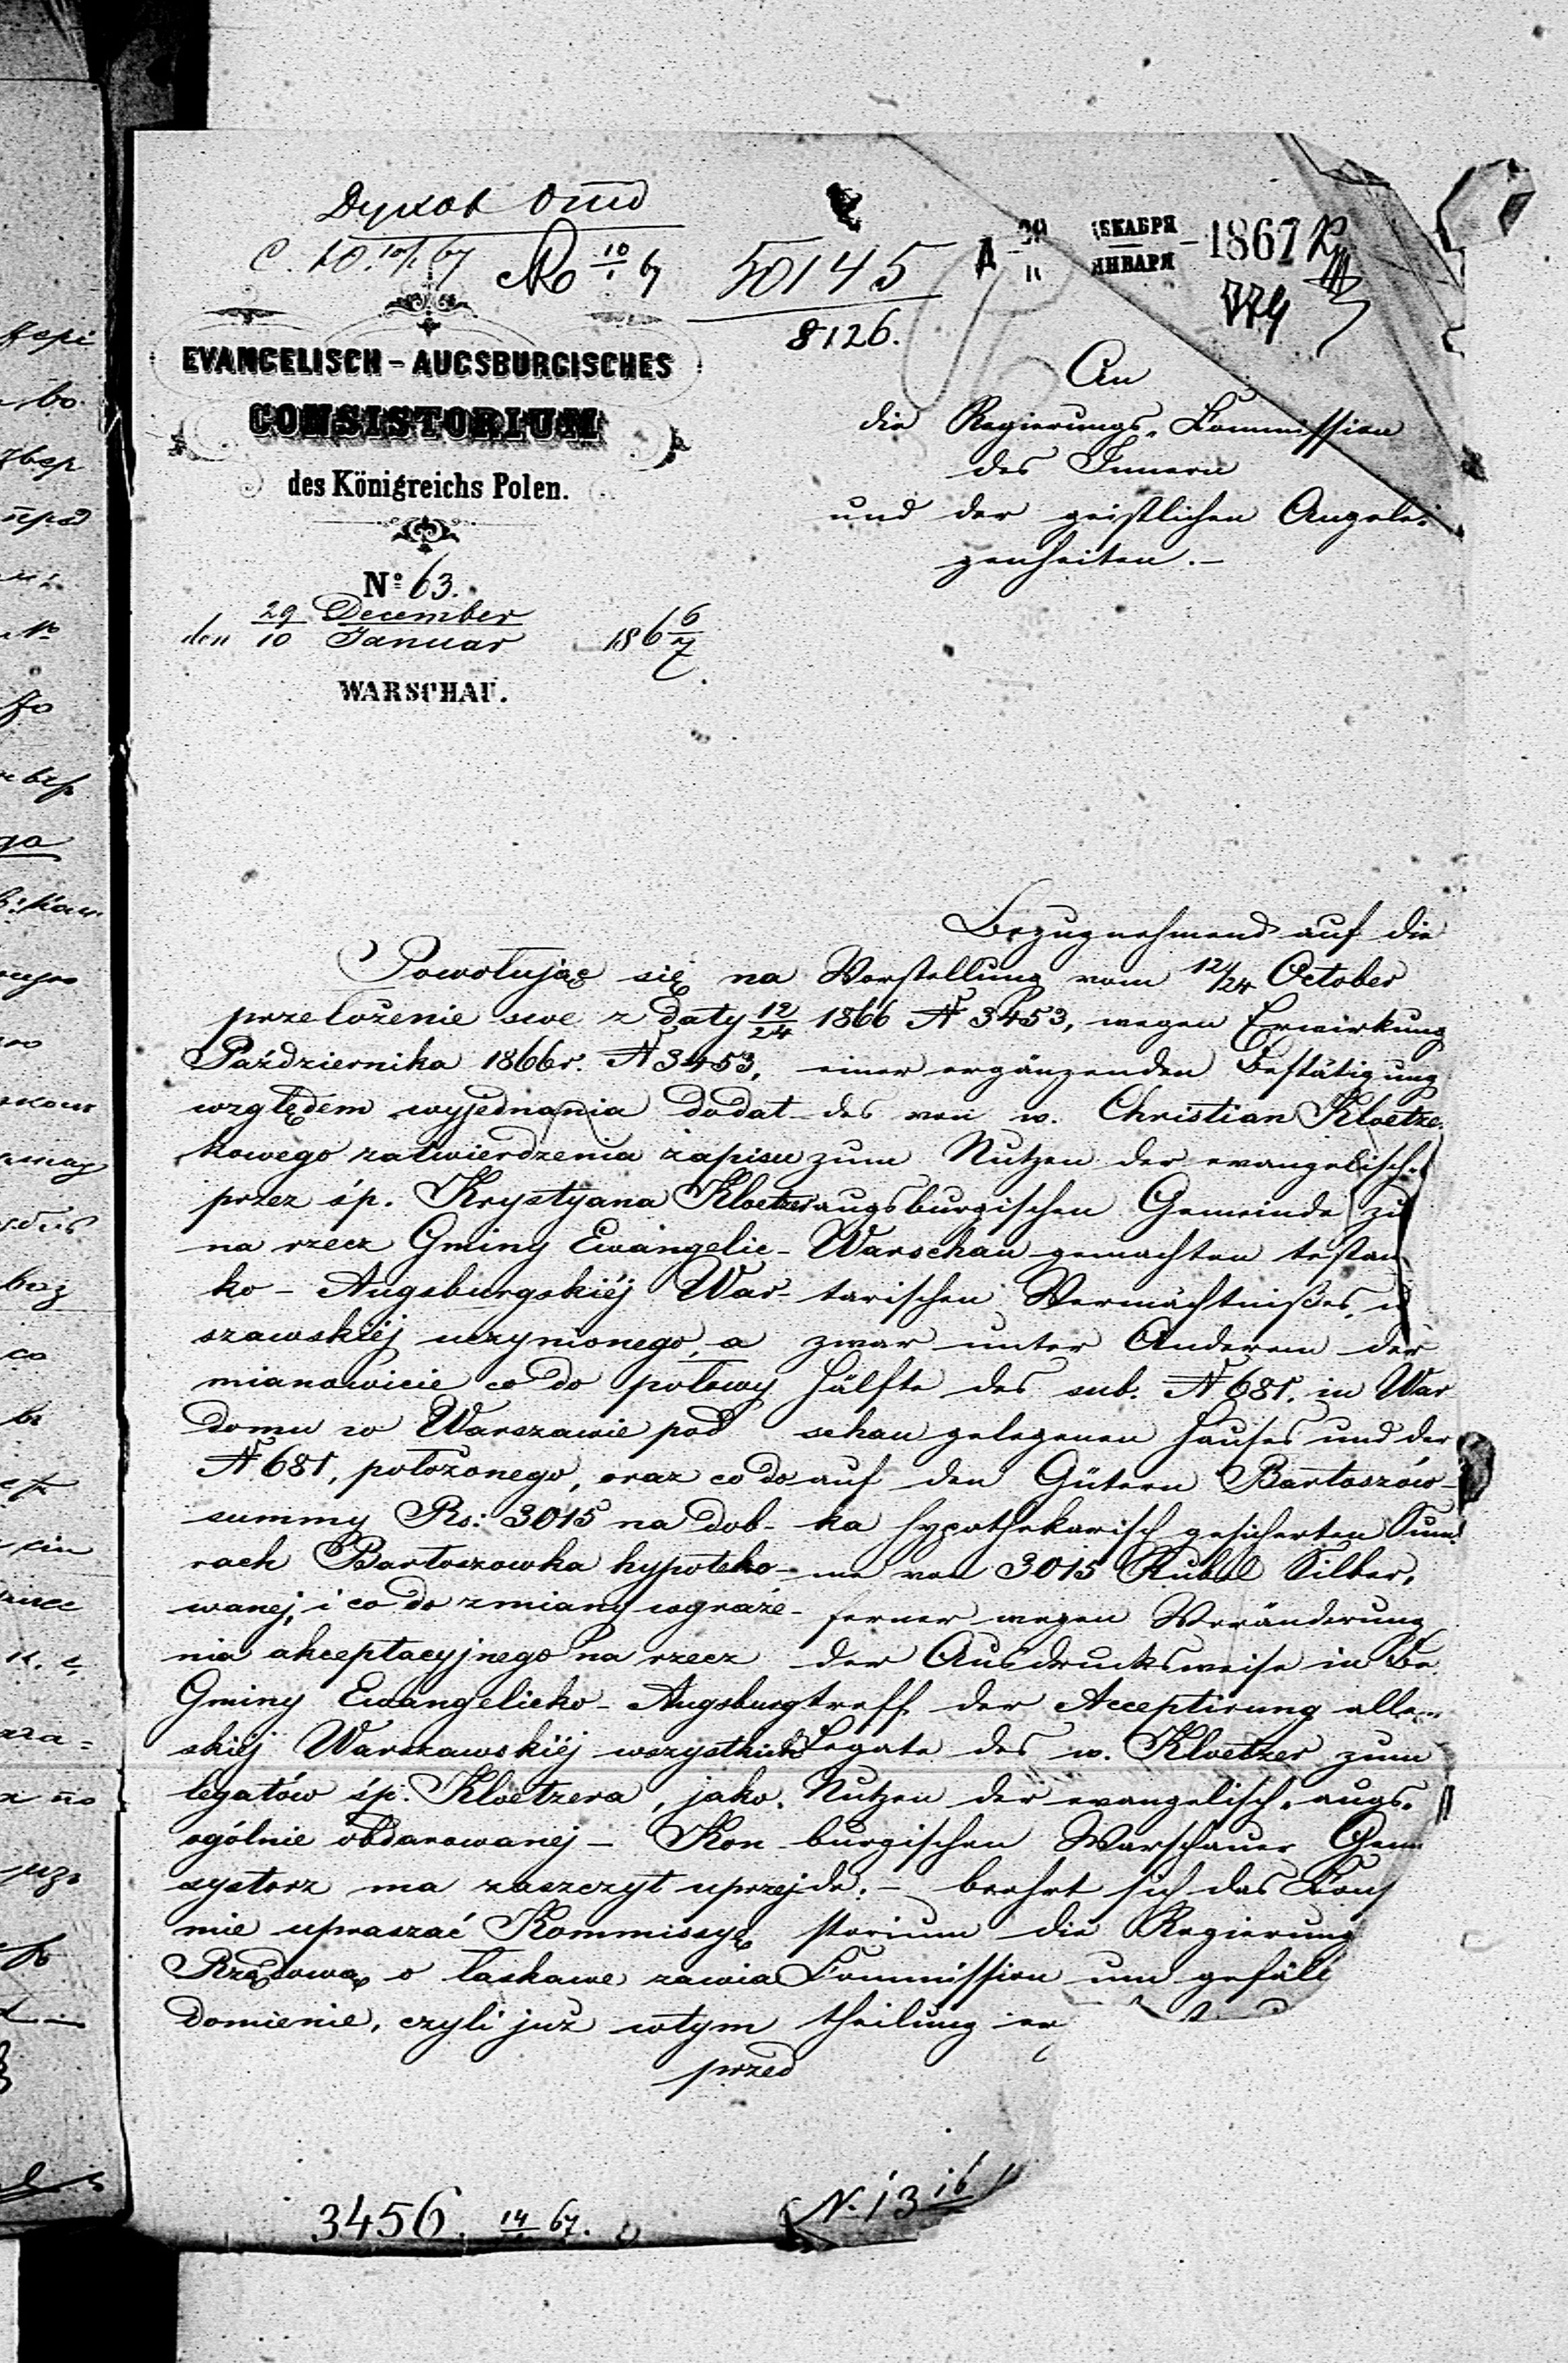 Духов Отд
50145
8126.
ДЕКАБРЯ
ЯНВАРЯ
1867
779
EVANGELISCH-AUGSBURGISCHES
CONSISTORIUM
des Königreichs Polen.
Nº 63.
den 29/10 December/Januar 186 6/7
WARSCHAU.
An
die Regierungs-Commission
des Innern
und der geistlichen Angele-
genheiten.-
Powołując się na
przełożenie swe z daty 12/24
Października 1866 r. N 3453,
względem wyjednania dodat-
kowego zatwierdzenia zapisu
przez śp. Krystyana Kloetzer
na rzecz Gminy Ewangelic-
ko-Augsburgskiéj War-
szawskiéj uczynionego, a
mianowicie co do połowy
domu w Warszawie pod
N 681, położonego, oraz co do
summy Rs: 3015 na dob-
rach Bartoszowka hypoteko-
wanej, i co do zmiany wyraże-
nia akceptacyjnego na rzecz
Gminy Ewangelicko-Augsburg
skiéj Warszawskiéj wszystkich
legatów śp. Kloetzera, jako
ogólnie obdarowanej - Kon-
systorz ma zaszczyt uprzej-
mie upraszać Kommissyę
Rządową o łaskawe zawia
domienie, czyli już w tym
przed
Bezugnehmend auf die
Vorstellung vom 12/24 October
1866 N 3453, wegen Erwirkung
einer ergänzenden Bestätigung
des von w. Christian Kloetze-
zum Nutzen der evangelisch-
augsburgischen Gemeinde zu
Warschau gemachten testam
tarischen Vermächtnißes, u
zwar unter Anderem der
Hälfte des sub. N 681. in War
schau gelegenen Hauses und der
auf den Gütern Bartoszów-
ka hypothekarisch gesicherten Sum-
me von 3015 Rubel Silber,
ferner wegen Veränderung
der Ausdrucksweise in Be
treff der Acceptirung aller
Legate des w. Kloetzer zum
Nutzen der evangelisch-augs-
burgischen Warschauer Gem
de.- beehrt sich das Consi
storium die Regierung
Commission um gefäll
theilung
3456. 14/67.
N. 13 16